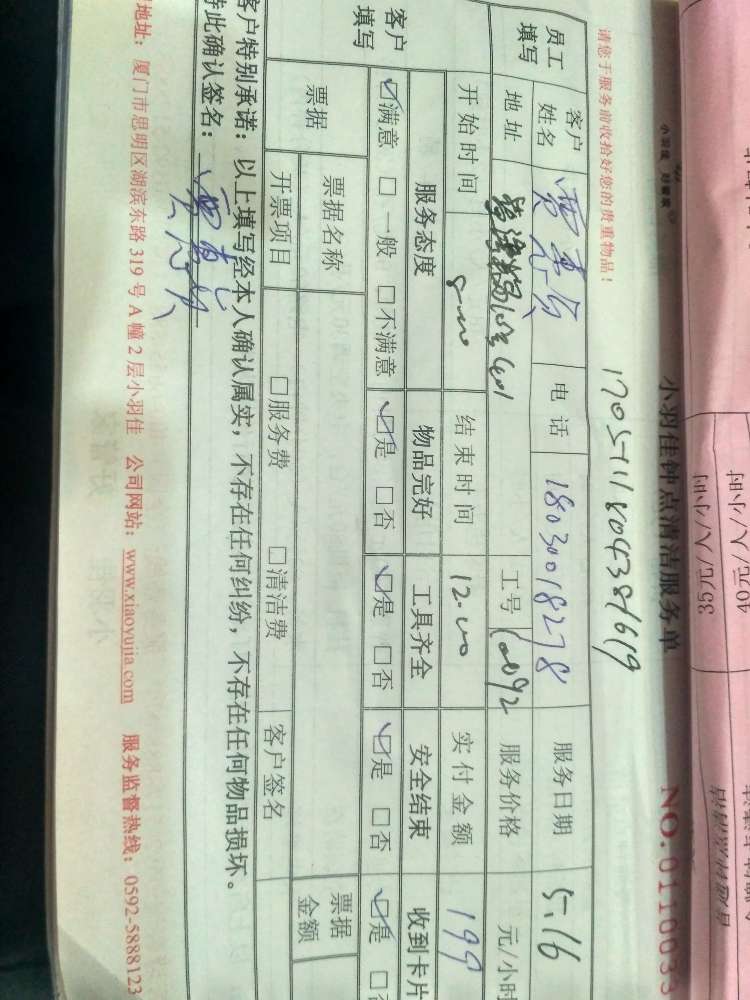 小羽佳钟点清洁服务单 NO.0110033
请您于服务前收拾好您的贵重物品！
员工填写 客户姓名 电话 18030018278 服务日期 5.16
地址 工号 服务价格 元/小时
开始时间 结束时间 12:00 实付金额 199
客户填写 服务态度 物品完好 工具齐全 安全结束 收到卡片
☑满意 □一般 □不满意 ☑是 □否 ☑是 □否 ☑是 □否 ☑是
票据 票据名称 票据金额
开票项目 □服务费 □清洁费 客户签名
客户特别承诺：以上填写经本人确认属实，不存在任何纠纷，不存在任何物品损坏。
特此确认签名：
地址：厦门市思明区湖滨东路 319 号 A 幢 2 层小羽佳 公司网站：www.xiaoyujia.com 服务监督热线：0592-5888123
40元/人/小时
35元/人/小时